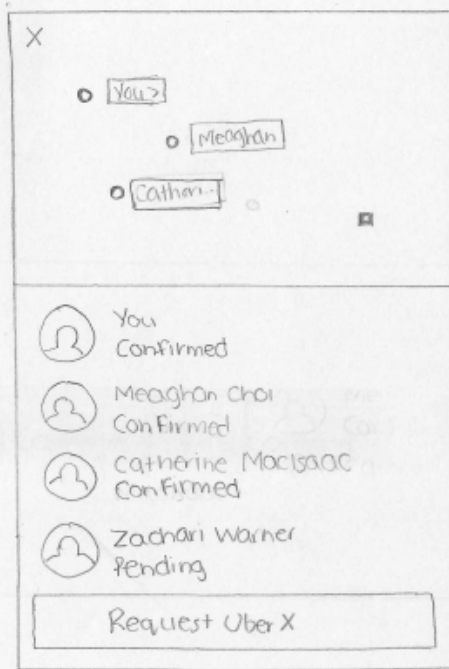 X
You >
Meaghan
Cathari..
You
Confirmed
Meaghan Choi
Confirmed
Catherine MacIsaac
Confirmed
Zachari Warner
Pending
Request Uber X